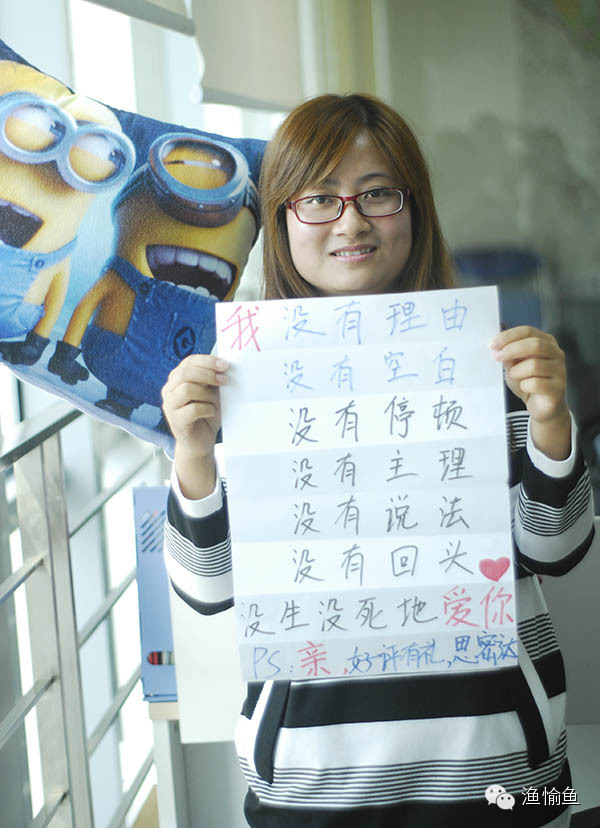 我没有理由
没有空白
没有停顿
没有主理
没有说法
没有回头
没生没死地爱你
PS:亲,好评有礼,思密达
渔愉鱼